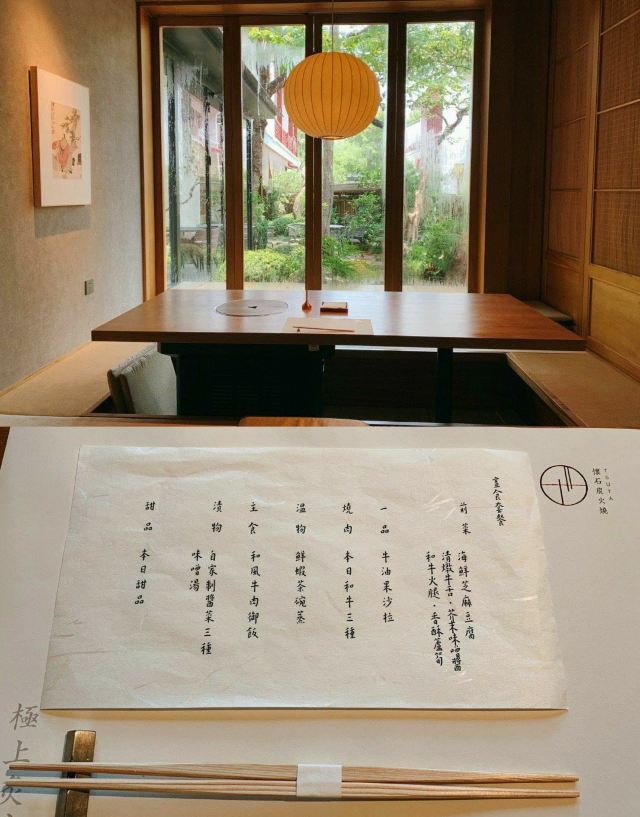 晝食套餐
前菜 海鮮芝麻豆腐
清燉牛舌・芥末味噌醬
和牛火腿・香酥蘆筍
一品 牛油果沙拉
燒肉 本日和牛三種
溫物 鮮蝦茶碗蒸
主食 和風牛肉御飯
漬物 自家制醬菜三種
味噌湯
甜品 本日甜品
TSUTA
懷石炭火燒
極上炭